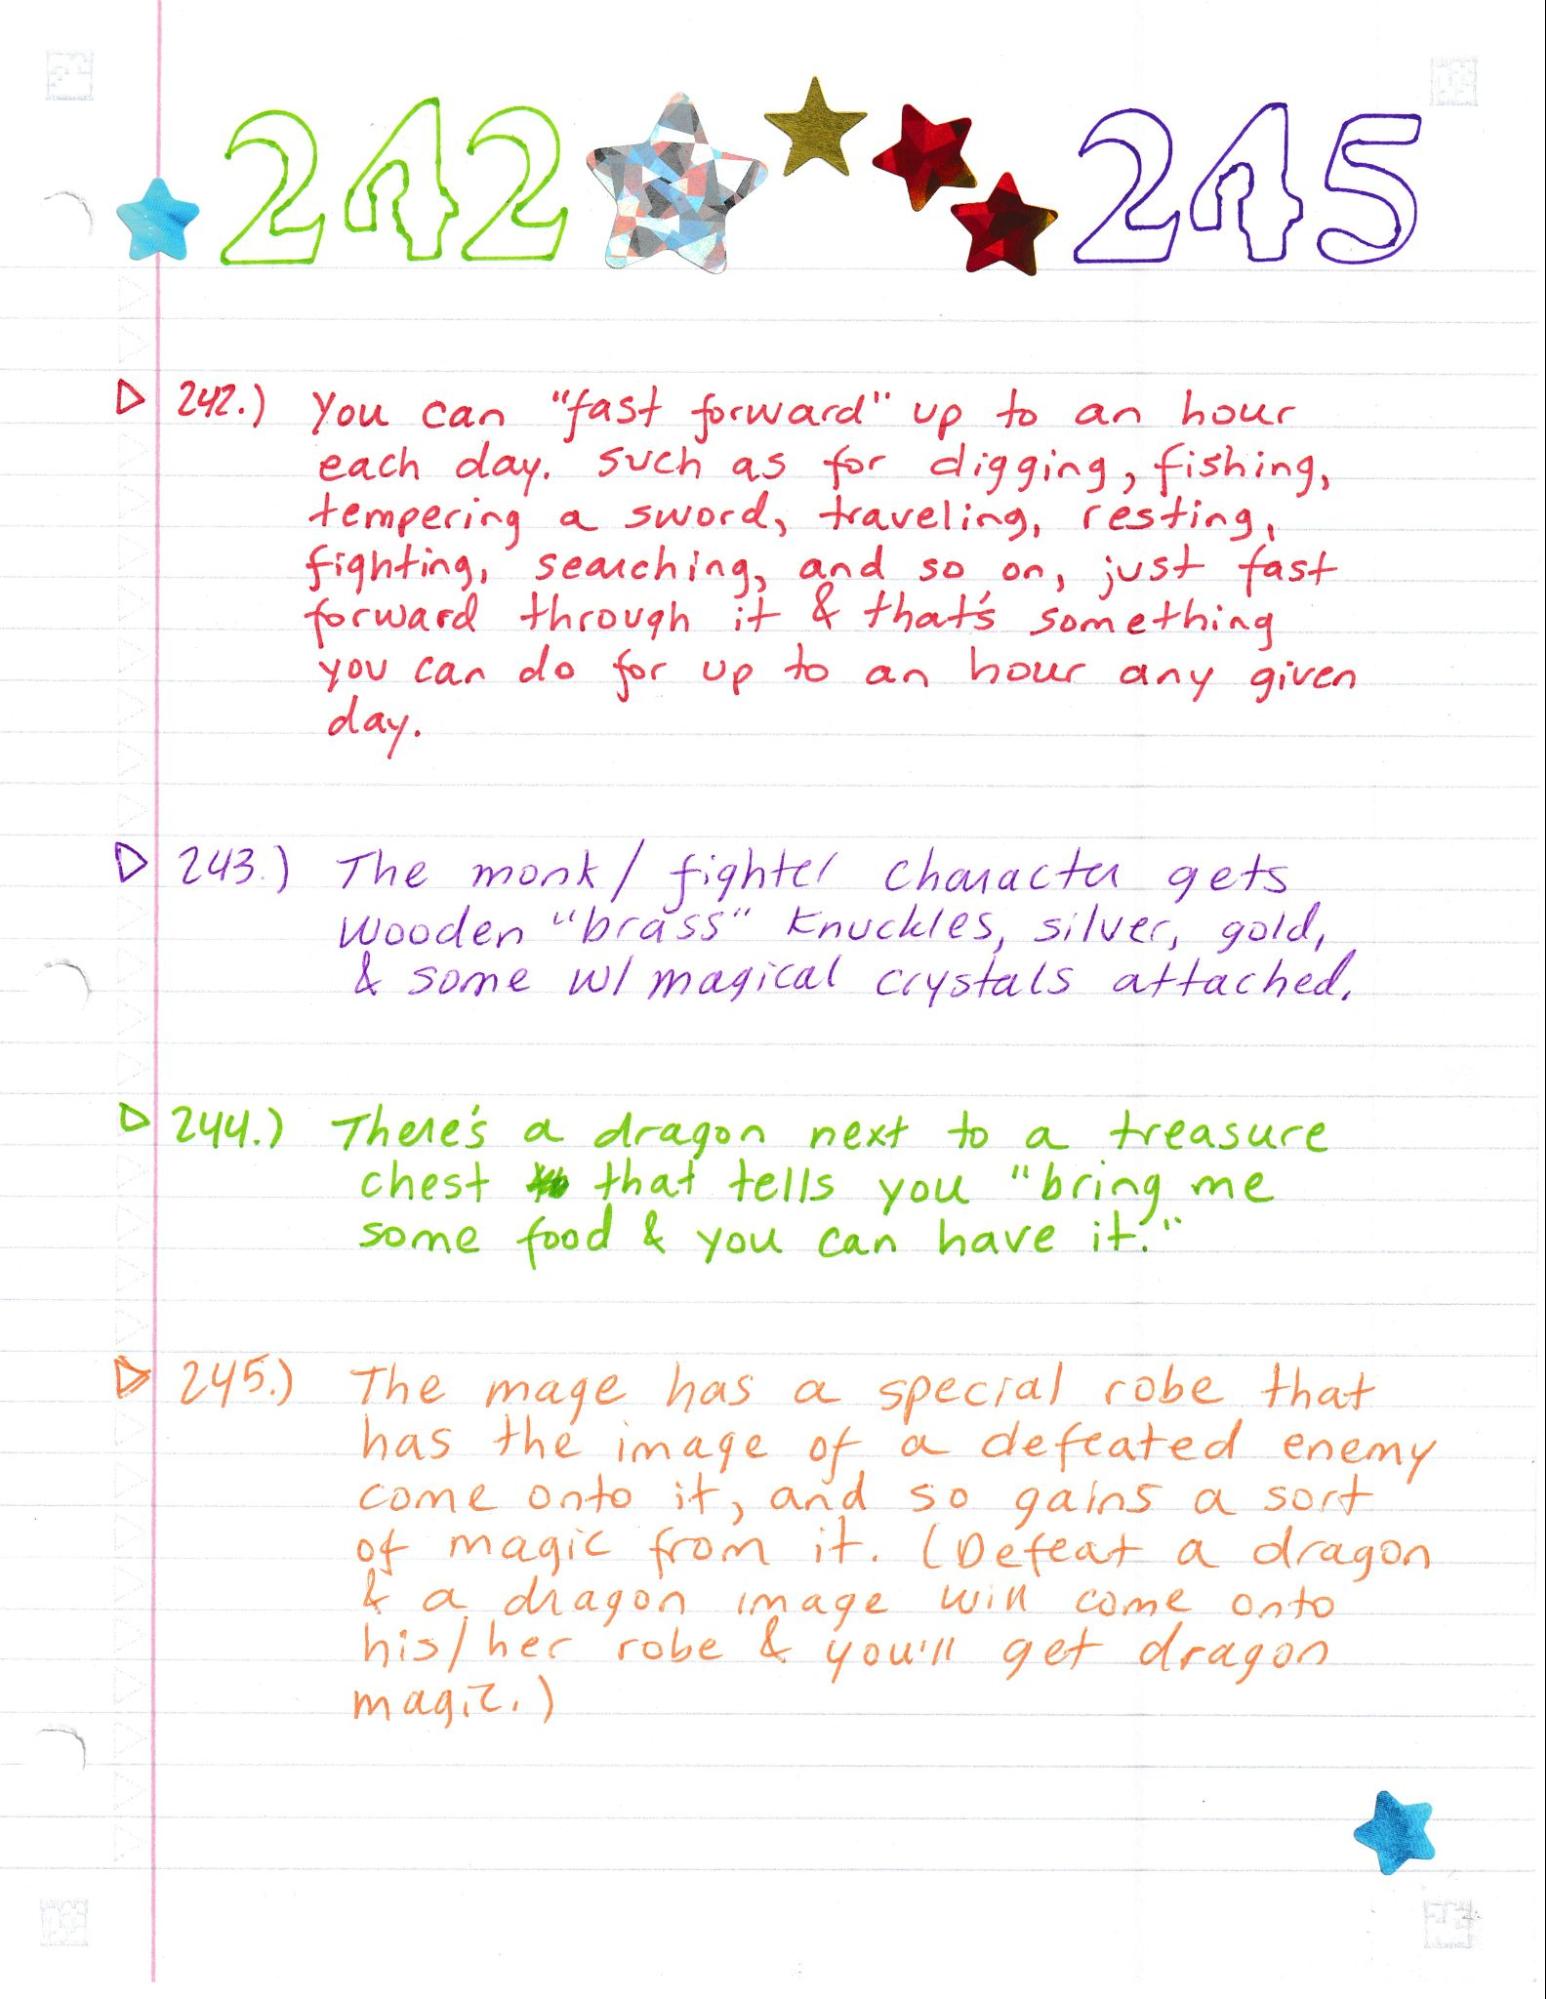 242 245
▷ 242.) You can "fast forward" up to an hour
each day. Such as for digging, fishing,
tempering a sword, traveling, resting,
fighting, searching, and so on, just fast
forward through it & that's something
you can do for up to an hour any given
day.
▷ 243.) The monk/fighter character gets
wooden "brass" knuckles, silver, gold,
& some w/ magical crystals attached.
▷ 244.) There's a dragon next to a treasure
chest that tells you "bring me
some food & you can have it."
▷ 245.) The mage has a special robe that
has the image of a defeated enemy
come onto it, and so gains a sort
of magic from it. (Defeat a dragon
& a dragon image will come onto
his/her robe & you'll get dragon
magic.)